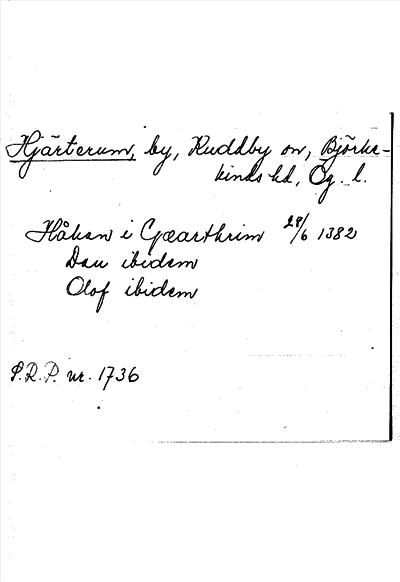 Hjärterum, by, Kuddby sn, Björke-
kinds hd, Ög. l.
Håkan i Gæarthrim 28/6 1382
Dan ibidem
Olof ibidem
S.R.P. nr. 1736